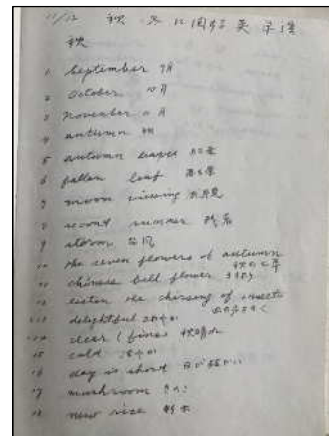 11/12 秋 冬に関する英単語
秋
1 September 9月
2 October 10月
3 November 11月
4 autumn 秋
5 autumn leaves 紅葉
6 fallen leaf 落ち葉
7 moon viewing お月見
8 second summer 残暑
9 storm 台風
10 the seven flowers of autumn
秋の七草
11 chinese bell flower ききょう
12 listen the chirsing of insects
13 delightful さわやか
14 clear (fine) 秋晴れ
15 cold
16 day is short 日が短かい
17 mushroom きのこ
18 new rice 新米